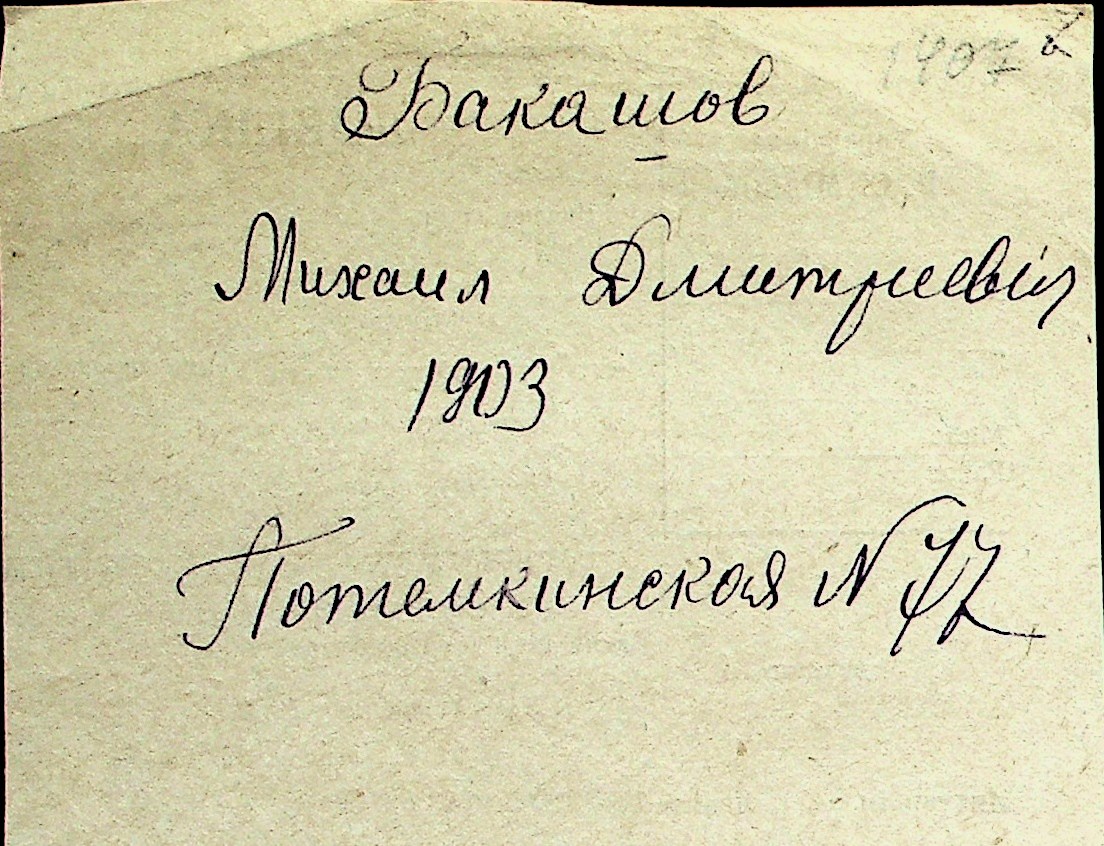 Бакашов
Михаил Дмитриевич
1903
Потемкинская N